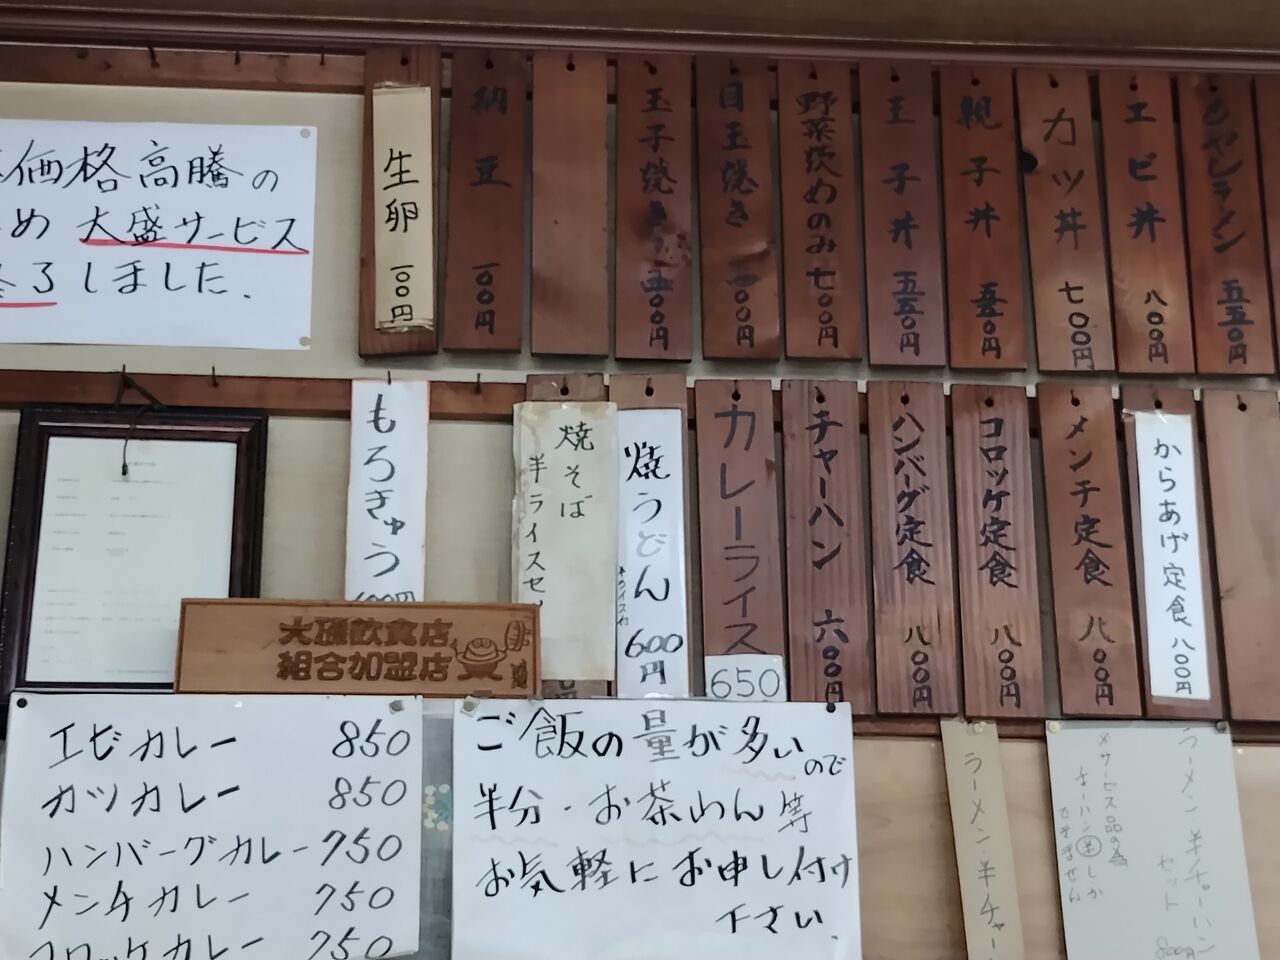 価格高騰の
め 大盛サービス
了しました.
生卵 一〇〇円
納豆 一〇〇円
玉子焼き
目玉焼き
野菜炊めのみ 七〇〇円
玉子丼 五五〇円
親子丼
カツ丼 七〇〇円
エビ丼 八〇〇円
ヒヤしラーメン 五五〇円
もろきゅう
焼そば
半ライスセ
焼うどん 600円
カレーライス 650
チャーハン 六〇〇円
ハンバーグ定食 八〇〇円
コロッケ定食 八〇〇円
メンチ定食 八〇〇円
からあげ定食 八〇〇円
大磯飲食店
組合加盟店
エビカレー 850
カツカレー 850
ハンバーグカレー 750
メンチカレー 750
コロッケカレー 750
ご飯の量が多いので
半分・お茶わん等
お気軽にお申し付け
下さい.
ラーメン 半チャー
ラーメン 半チャーハン
セット 800円
サービス品の為
チャーハン半しか
できません